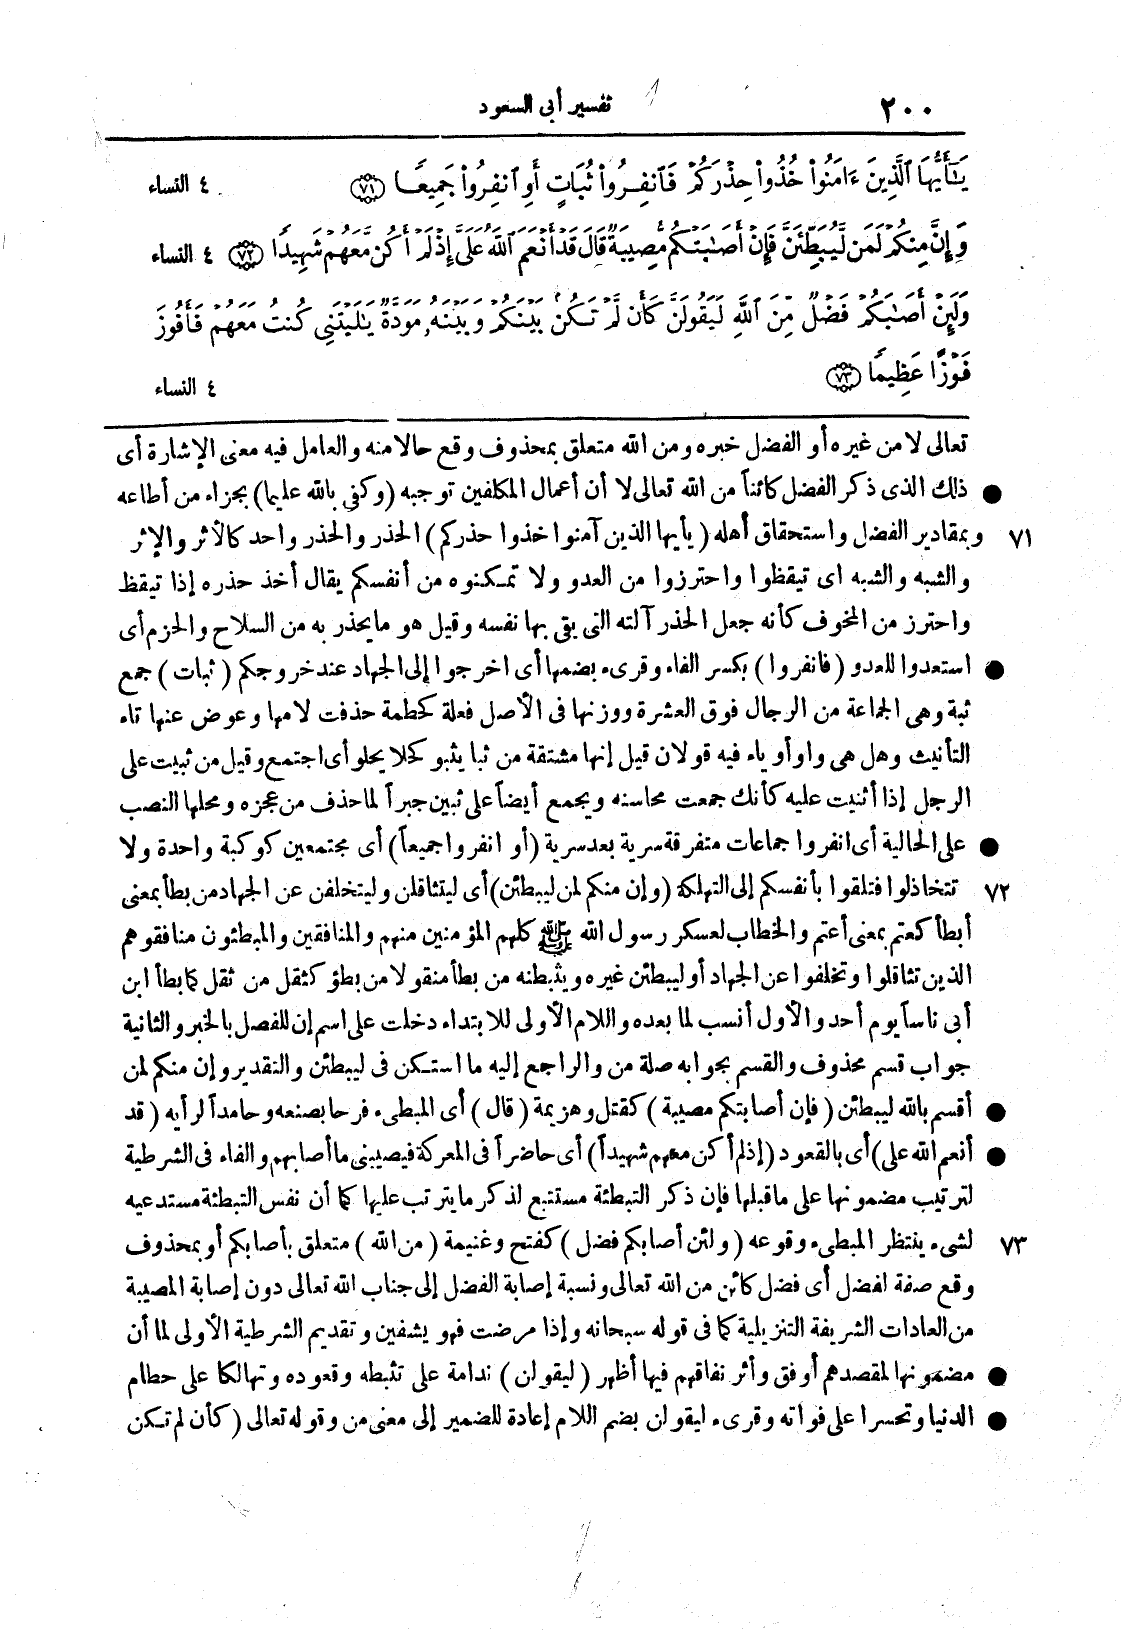 ٢٠٠ تفسير أبى السعود
يَٰٓأَيُّهَا ٱلَّذِينَ ءَامَنُوا۟ خُذُوا۟ حِذْرَكُمْ فَٱنفِرُوا۟ ثُبَاتٍ أَوِ ٱنفِرُوا۟ جَمِيعًا ﴿٧١﴾ ٤ النساء
وَإِنَّ مِنكُمْ لَمَن لَّيُبَطِّئَنَّ فَإِنْ أَصَٰبَتْكُم مُّصِيبَةٌ قَالَ قَدْ أَنْعَمَ ٱللَّهُ عَلَىَّ إِذْ لَمْ أَكُن مَّعَهُمْ شَهِيدًا ﴿٧٢﴾ ٤ النساء
وَلَئِنْ أَصَٰبَكُمْ فَضْلٌ مِّنَ ٱللَّهِ لَيَقُولَنَّ كَأَن لَّمْ تَكُنۢ بَيْنَكُمْ وَبَيْنَهُۥ مَوَدَّةٌ يَٰلَيْتَنِى كُنتُ مَعَهُمْ فَأَفُوزَ
فَوْزًا عَظِيمًا ﴿٧٣﴾ ٤ النساء
تعالى لا من غيره أو الفضل خبره ومن الله متعلق بمحذوف وقع حالا منه والعامل فيه معنى الإشارة أى
● ذلك الذى ذكر الفضل كائناً من الله تعالى لا أن أعمال المكلفين توجبه (وكفى بالله عليما) بجزاء من أطاعه
٧١ وبمقادير الفضل واستحقاق أهله (يأيها الذين آمنوا خذوا حذركم) الحذر والحذر واحد كالأثر والإثر
والشبه والشبه اى تيقظوا واحترزوا من العدو ولا تمكنوه من أنفسكم يقال أخذ حذره إذا تيقظ
واحترز من المخوف كأنه جعل الحذر آلته التى يقى بها نفسه وقيل هو ما يحذر به من السلاح والحزم أى
● استعدوا للعدو (فانفروا) بكسر الفاء وقرىء بضمها أى اخرجوا إلى الجهاد عند خروجكم (ثبات) جمع
ثبة وهى الجماعة من الرجال فوق العشرة ووزنها فى الأصل فعلة كحطمة حذفت لامها وعوض عنها تاء
التأنيث وهل هى واو أو ياء فيه قولان قيل إنها مشتقة من ثبا يثبو كحلا يحلو أى اجتمع وقيل من ثبيت على
الرجل إذا أثنيت عليه كأنك جمعت محاسنه ويجمع أيضاً على ثبين جبراً لما حذف من عجزه ومحلها النصب
● على الحالية أى انفروا جماعات متفرقة سرية بعد سرية (أو انفروا جميعاً) أى مجتمعين كوكبة واحدة ولا
٧٢ تتخاذلوا فتلقوا بأنفسكم إلى التهلكة (وإن منكم لمن ليبطئن) أى ليتثاقلن وليتخلفن عن الجهاد من بطأ بمعنى
أبطأ كعتم بمعنى أعتم والخطاب لعسكر رسول الله ﷺ كلهم المؤمنين منهم والمنافقين والمبطئون منافقوهم
الذين تثاقلوا وتخلفوا عن الجهاد أو ليبطئن غيره ويثبطنه من بطأ منقولا من بطؤ كثقل من ثقل كما بطأ ابن
أبى ناسا يوم أحد والأول أنسب لما بعده واللام الأولى للابتداء دخلت على اسم إن للفصل بالخبر والثانية
جواب قسم محذوف والقسم بجوابه صلة من والراجع إليه ما استكن فى ليبطئن والتقدير وإن منكم لمن
● أقسم بالله ليبطئن (فإن أصابتكم مصيبة) كقتل وهزيمة (قال) أى المبطىء فرحا بصنعه وحامداً لرأيه (قد
● أنعم الله على) أى بالقعود (إذ لم أكن معهم شهيداً) أى حاضراً فى المعركة فيصيبنى ما أصابهم والفاء فى الشرطية
لترتيب مضمونها على ما قبلها فإن ذكر التبطئة مستتبع لذكر ما يترتب عليها كما أن نفس التبطئة مستدعيه
٧٣ لشىء ينتظر المبطىء وقوعه (ولئن أصابكم فضل) كفتح وغنيمة (من الله) متعلق بأصابكم أو بمحذوف
وقع صفة لفضل أى فضل كائن من الله تعالى ونسبة إصابة الفضل إلى جناب الله تعالى دون إصابة المصيبة
من العادات الشريفة التنزيلية كما فى قوله سبحانه وإذا مرضت فهو يشفين وتقديم الشرطية الأولى لما أن
● مضمونها لمقصدهم أوفق وأثر نفاقهم فيها أظهر (ليقولن) ندامة على تثبطه وقعوده وتهالكا على حطام
● الدنيا وتحسرا على فواته وقرىء ليقولن بضم اللام إعادة للضمير إلى معنى من وقوله تعالى (كأن لم تكن